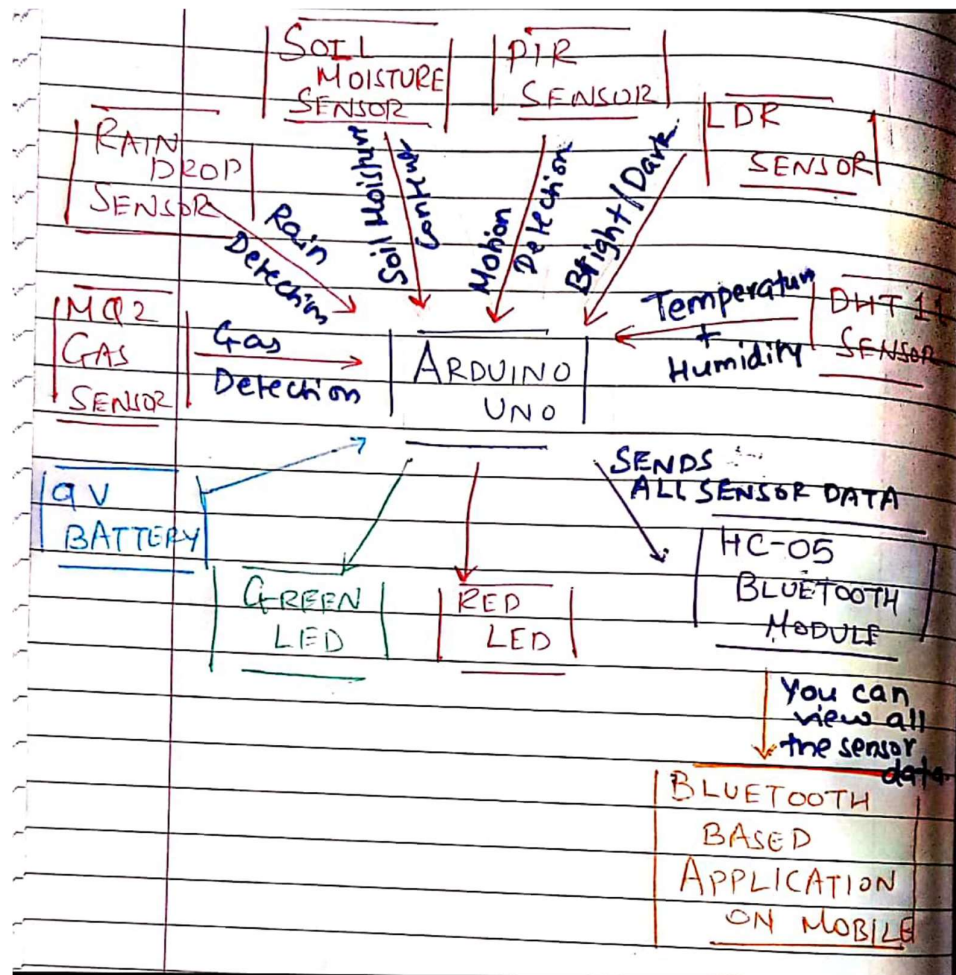 SOIL
MOISTURE
SENSOR
PIR
SENSOR
LDR
SENSOR
RAIN
DROP
SENSOR
Rain
Detection
Soil Moisture
Content
Motion
Detection
Bright/Dark
MQ2
GAS
SENSOR
Gas
Detection
ARDUINO
UNO
Temperature
+
Humidity
DHT 11
SENSOR
9V
BATTERY
SENDS
ALL SENSOR DATA
GREEN
LED
RED
LED
HC-05
BLUETOOTH
MODULE
You can
view all
the sensor
data.
BLUETOOTH
BASED
APPLICATION
ON MOBILE